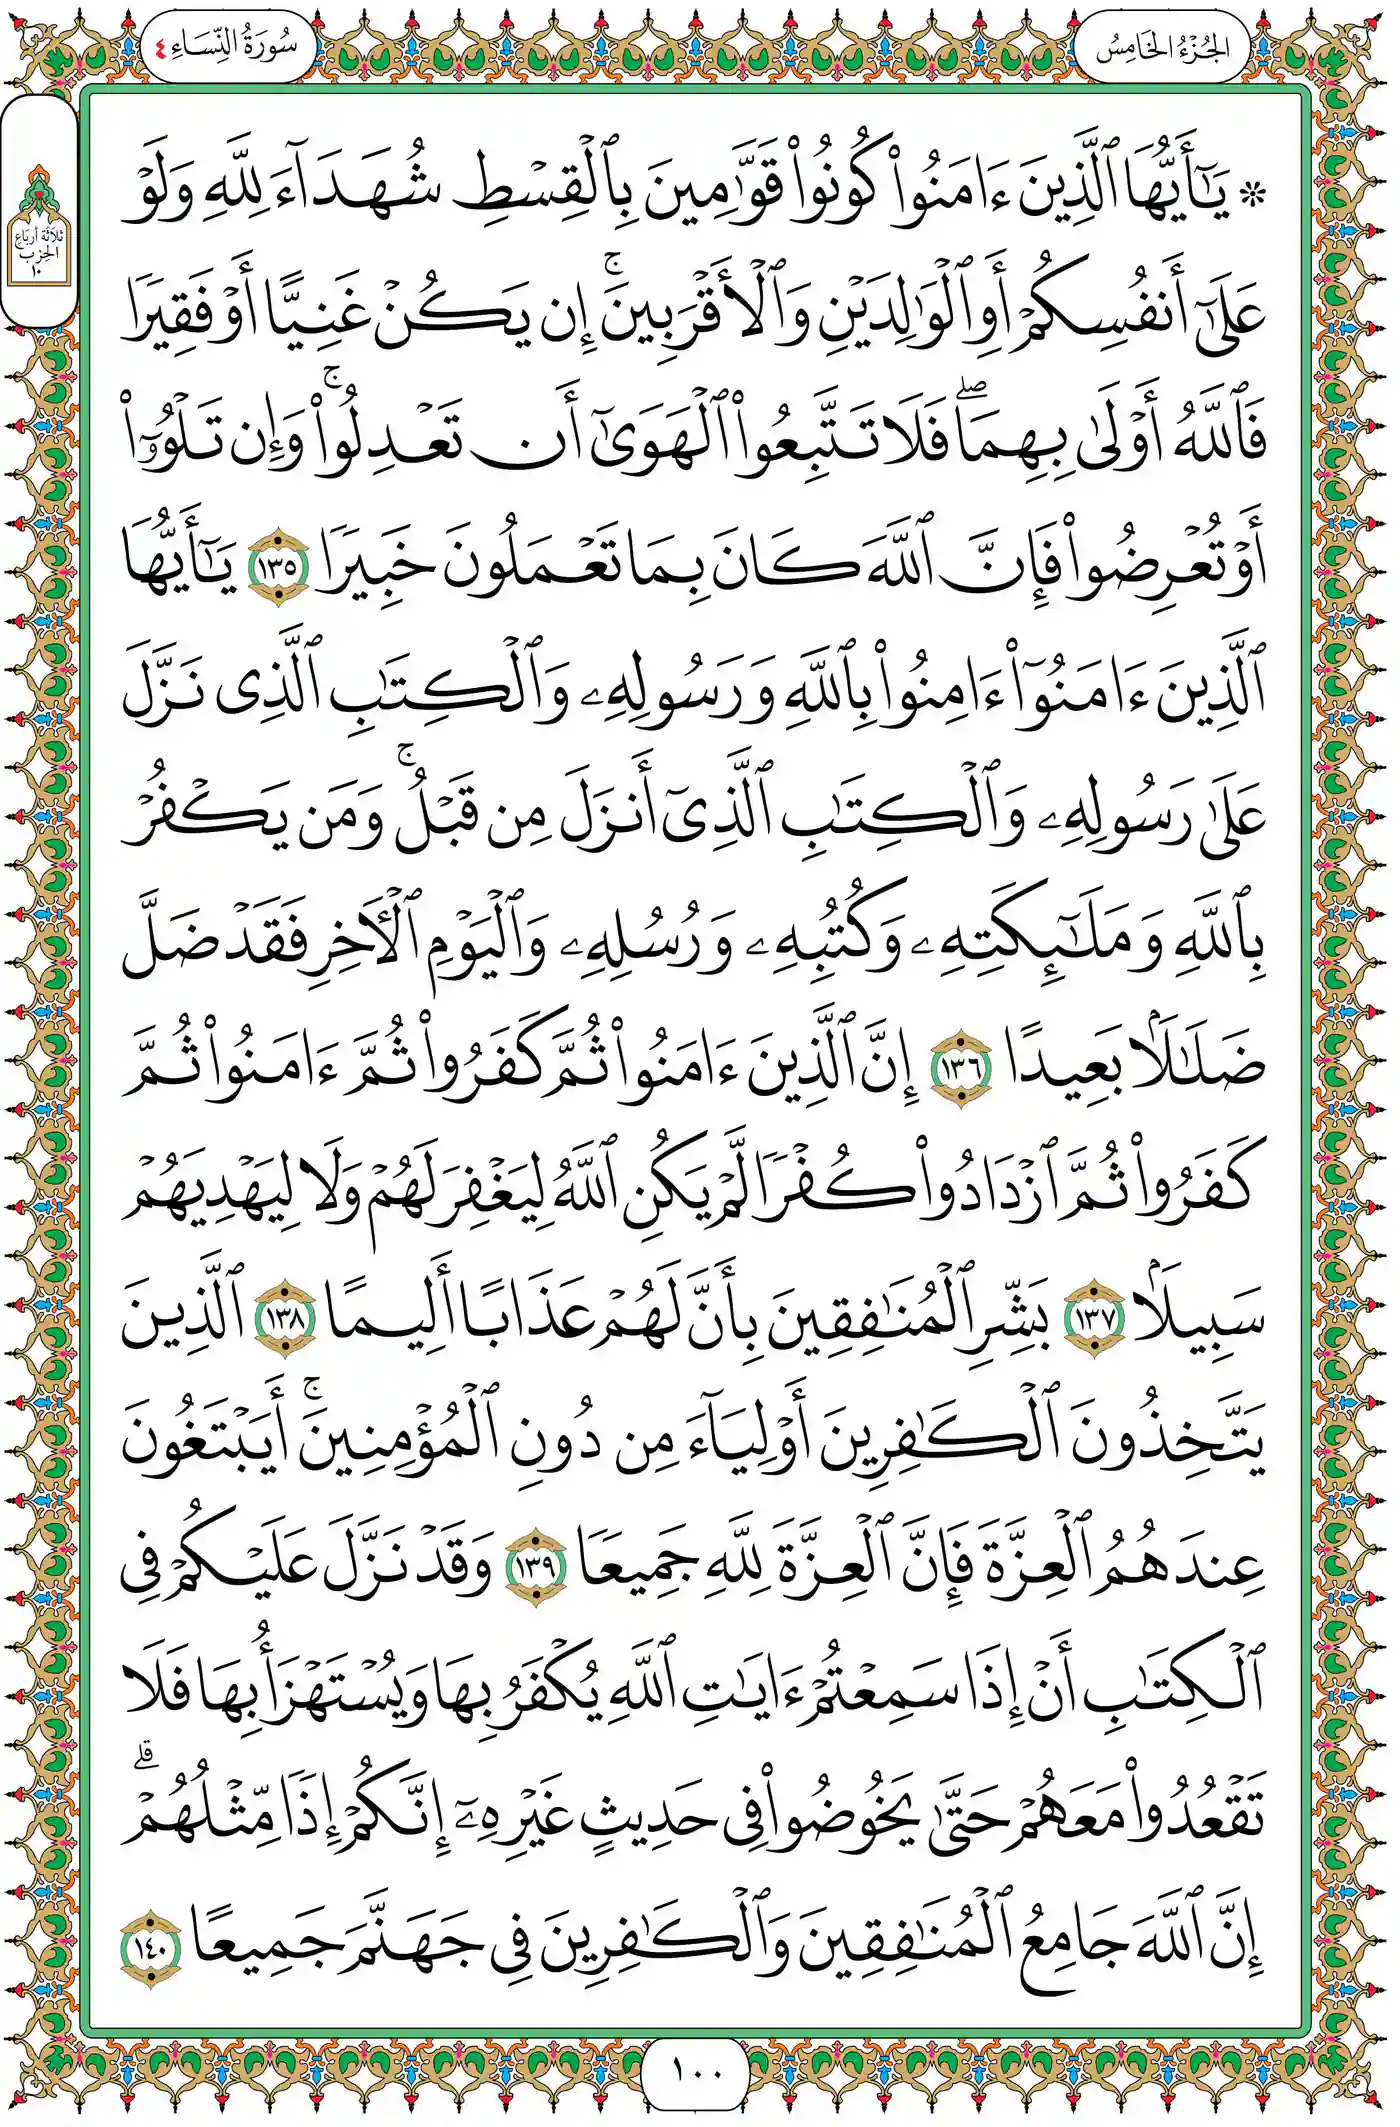 الجُزْءُ الخَامِسُ
سُورَةُ النِّسَاءِ ٤
ثلاثة أرباع
الحزب
١٠
۞ يَـٰٓأَيُّهَا ٱلَّذِينَ ءَامَنُوا۟ كُونُوا۟ قَوَّٰمِينَ بِٱلْقِسْطِ شُهَدَآءَ لِلَّهِ وَلَوْ
عَلَىٰٓ أَنفُسِكُمْ أَوِ ٱلْوَٰلِدَيْنِ وَٱلْأَقْرَبِينَ ۚ إِن يَكُنْ غَنِيًّا أَوْ فَقِيرًا
فَٱللَّهُ أَوْلَىٰ بِهِمَا ۖ فَلَا تَتَّبِعُوا۟ ٱلْهَوَىٰٓ أَن تَعْدِلُوا۟ ۚ وَإِن تَلْوُۥٓا۟
أَوْ تُعْرِضُوا۟ فَإِنَّ ٱللَّهَ كَانَ بِمَا تَعْمَلُونَ خَبِيرًا ١٣٥ يَـٰٓأَيُّهَا
ٱلَّذِينَ ءَامَنُوٓا۟ ءَامِنُوا۟ بِٱللَّهِ وَرَسُولِهِۦ وَٱلْكِتَـٰبِ ٱلَّذِى نَزَّلَ
عَلَىٰ رَسُولِهِۦ وَٱلْكِتَـٰبِ ٱلَّذِىٓ أَنزَلَ مِن قَبْلُ ۚ وَمَن يَكْفُرْ
بِٱللَّهِ وَمَلَـٰٓئِكَتِهِۦ وَكُتُبِهِۦ وَرُسُلِهِۦ وَٱلْيَوْمِ ٱلْـَٔاخِرِ فَقَدْ ضَلَّ
ضَلَـٰلًۢا بَعِيدًا ١٣٦ إِنَّ ٱلَّذِينَ ءَامَنُوا۟ ثُمَّ كَفَرُوا۟ ثُمَّ ءَامَنُوا۟ ثُمَّ
كَفَرُوا۟ ثُمَّ ٱزْدَادُوا۟ كُفْرًا لَّمْ يَكُنِ ٱللَّهُ لِيَغْفِرَ لَهُمْ وَلَا لِيَهْدِيَهُمْ
سَبِيلًۢا ١٣٧ بَشِّرِ ٱلْمُنَـٰفِقِينَ بِأَنَّ لَهُمْ عَذَابًا أَلِيمًا ١٣٨ ٱلَّذِينَ
يَتَّخِذُونَ ٱلْكَـٰفِرِينَ أَوْلِيَآءَ مِن دُونِ ٱلْمُؤْمِنِينَ ۚ أَيَبْتَغُونَ
عِندَهُمُ ٱلْعِزَّةَ فَإِنَّ ٱلْعِزَّةَ لِلَّهِ جَمِيعًا ١٣٩ وَقَدْ نَزَّلَ عَلَيْكُمْ فِى
ٱلْكِتَـٰبِ أَنْ إِذَا سَمِعْتُمْ ءَايَـٰتِ ٱللَّهِ يُكْفَرُ بِهَا وَيُسْتَهْزَأُ بِهَا فَلَا
تَقْعُدُوا۟ مَعَهُمْ حَتَّىٰ يَخُوضُوا۟ فِى حَدِيثٍ غَيْرِهِۦٓ إِنَّكُمْ إِذًا مِّثْلُهُمْ ۗ
إِنَّ ٱللَّهَ جَامِعُ ٱلْمُنَـٰفِقِينَ وَٱلْكَـٰفِرِينَ فِى جَهَنَّمَ جَمِيعًا ١٤٠
١٠٠